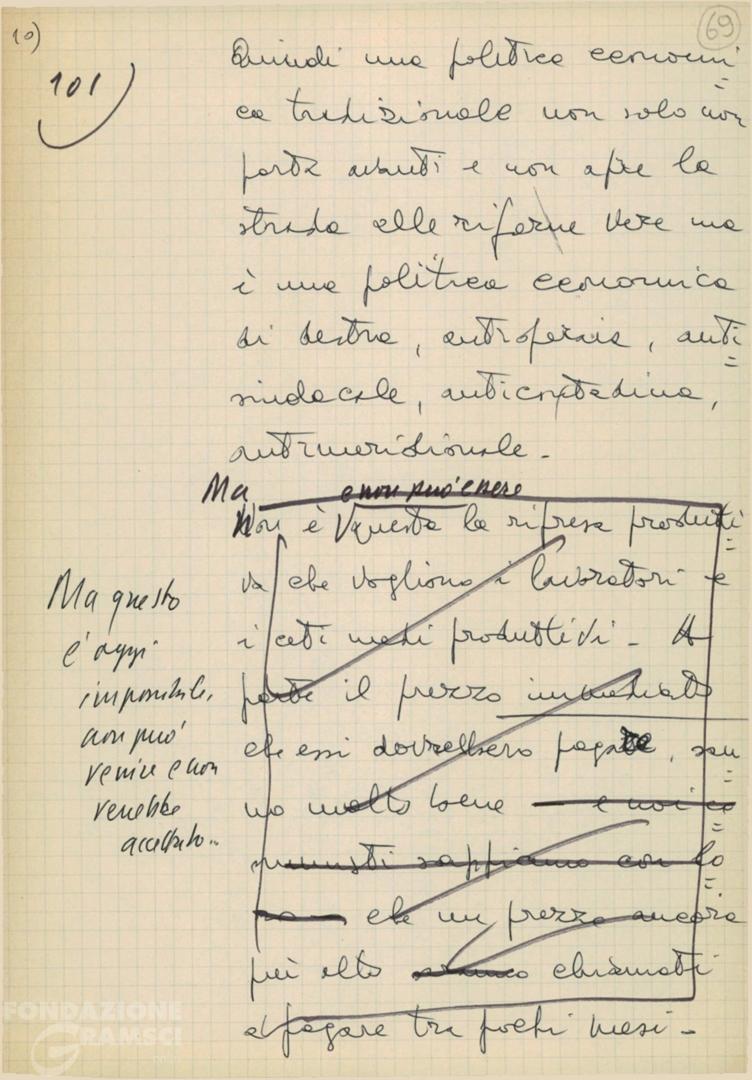 10)
69
101
Quindi una politica economi=
ca tradizionale non solo non
porta avanti e non apre la
strada alle riforme vere ma
è una politica economica
di destra, antioperaia, anti=
sindacale, anticontadina,
antimeridionale.
Ma e non può essere
Non è questa la ripresa produtti=
va che vogliono i lavoratori e
i ceti medi produttivi. A
parte il prezzo immediato
che essi dovrebbero pagare, san=
no molto bene e noi co=
munisti sappiamo con lo=
ro che un prezzo ancora
più alto chiamati
a pagare tra pochi mesi.
Ma questo
è oggi
impossibile,
non può
venire e non
verrebbe
accettato..
FONDAZIONE
GRAMSCI